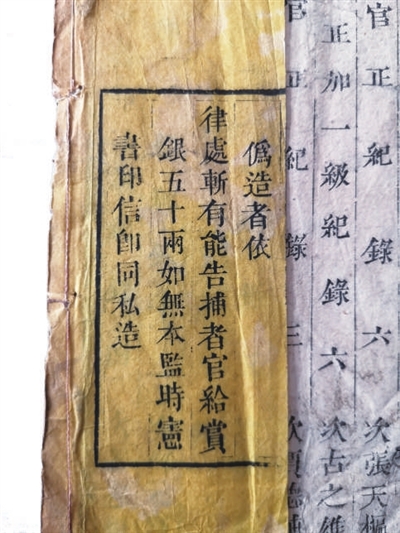 官正紀錄六次張天樞
正加一級紀錄六次古之維
官正紀錄三次
僞造者依
律處斬有能告捕者官給賞
銀五十兩如無本監時憲
書印信卽同私造